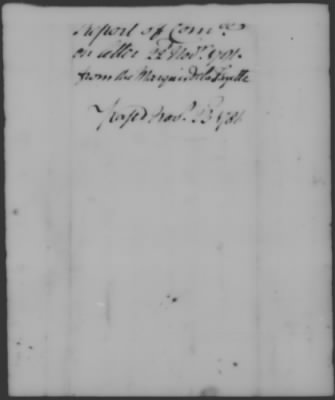 Report of Comee
on letter 22 Novr. 1781
from the Marquis de la Fayette
Passed Novr. 23 1781